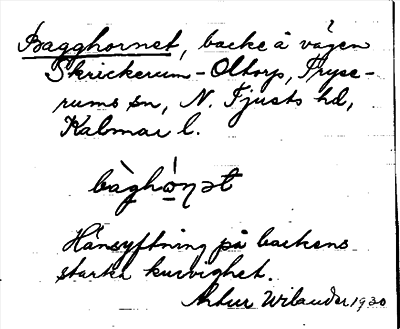 Bagghornet, backe å vägen
Skrickerum - Oltorp, Tryse-
rums sn, N. Tjusts hd,
Kalmar l.
Hänsyftning på backens
starka kurvighet.
Artur Wilander 1930